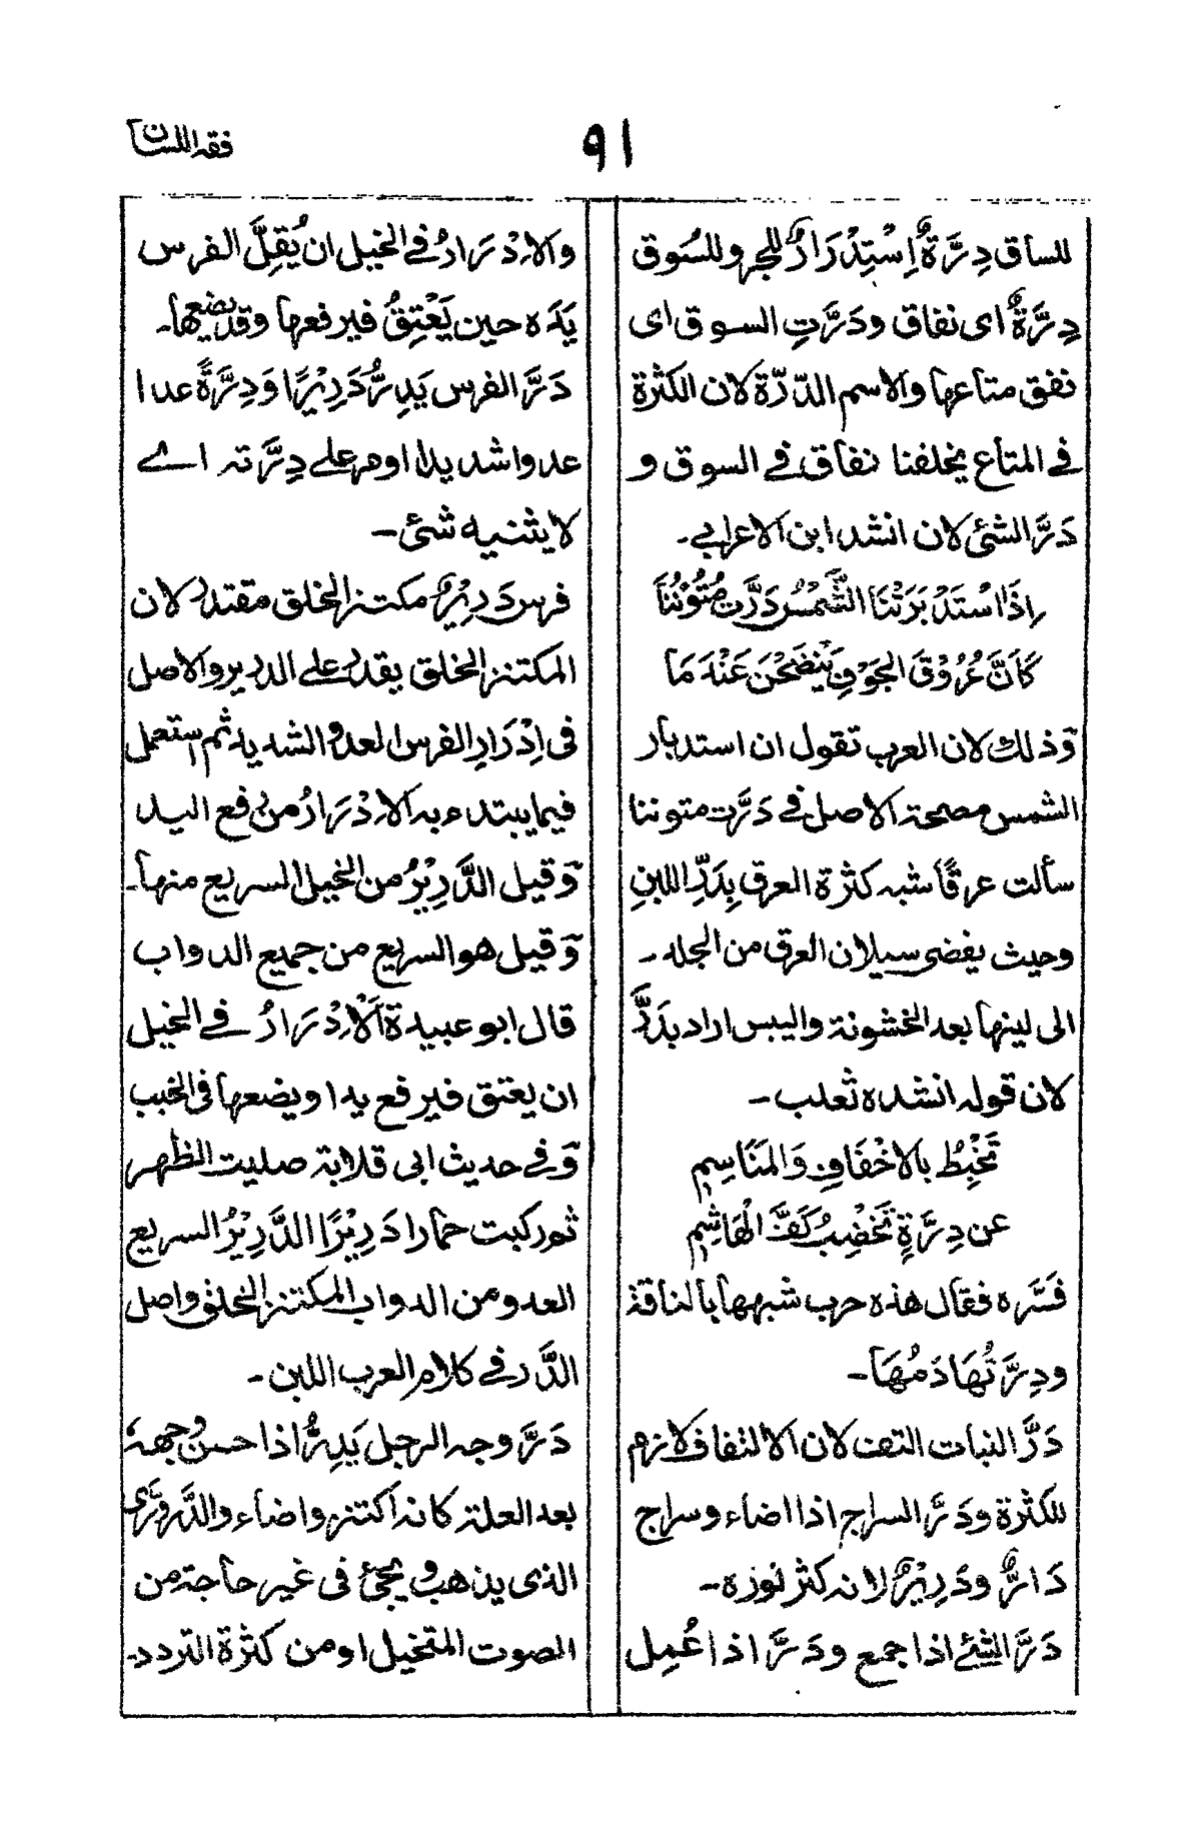 فقہ اللسان
٩١
للساق دِرَّةٌ اِسْتِدْرَارٌ للجر وللسُوق
دِرَّةٌ ای نفاق ودَرَّتِ السوق ای
نفق متاعها والاسم الدّرّة لان الكثرة
فے المتاع يخلفنا نفاق فے السوق و
دَرَّ الشئ لان انشد ابن الاعرابے۔
اِذَا اسْتَدْبَرَتْنَا الشَّمْسُ دَرَّتْ مُتُوْنُنَا
كَاَنَّ عُرُوْقَ الجَوْفِ يَنْضَحْنَ عَنْدَ مَا
وَذلك لان العرب تقول ان استدبار
الشمس مصحة الاصل فے دَرَّت متوننا
سألت عرقًا شبہ كثرة العرق بِدَرِّ اللبنِ
وحيث يفضى سيلان العرق من الجلد۔
الى لينها بعد الخشونة واليبس اراد بدَرَّ
لان قوله انشده ثعلب۔
تَخْبِطُ بالاخْفَافِ وَالمَنَاسِمِ
عن دِرَّةٍ تَخْضِبُ كَفَّ الْهَاشِمِ
فَسَّره فقال هذه حرب شبهها بالناقة
ودِرَّتُهَا دَمُهَا۔
دَرَّ النبات التف لان الالتفاف لازم
للكثرة ودَرَّ السراج اذا اضاء وسراج
دَارٌّ ودَرِيْرٌ لانہ كثر نوره۔
دَرَّ الشئ اذا جمع ودَرَّ اذا عُمِل
والاِدْرَارُ فے الخيل ان يُقِلَّ الفرس
يَدَه حين يَعْتِقُ فيرفعها وقد يضعها۔
دَرَّ الفرس يَدِرُّ دَرِيْرًا وَدِرَّةً عدا
عدوا شديدا او مر علے دِرَّتہ اے
لا يثنيه شئ۔
فرس دَرِيْرٌ مكتنز الخلق مقتدر لان
المكتنز الخلق يقدر علے الدرير والاصل
فى اِدْرَارِ الفرس العدو الشديد ثم استعمل
فيما يبتدء بہ الاِدْرَارُ من رفع اليد
وَقيل الدَّرِيْرُ من الخيل السريع منها۔
وَقيل هو السريع من جميع الدواب
قال ابو عبيدة اَلْاِدْرَارُ فے الخيل
ان يعتق فيرفع يدا ويضعها فى الخبب
وَفے حديث ابى قلابة صليت الظهر
ثم ركبت حمارا دَرِيْرًا الدَّرِيْرُ السريع
العدو من الدواب المكتنز الخلق واصل
الدَّر فے كلام العرب اللبن۔
دَرَّ وجہ الرجل يَدِرُّ اذا حسن وجهہٗ
بعد العلة كانہ اكتنز واضاء والدَّرَوَرَّى
الذى يذهب ويجئ فى غير حاجة من
الصوت المتخيل او من كثرة التردد۔